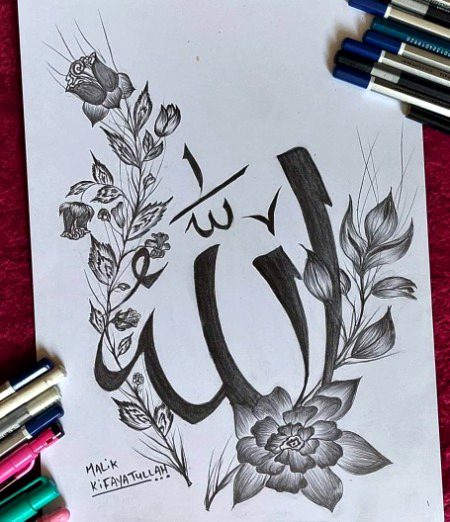 الله
MALIK
KIFAYATULLAH